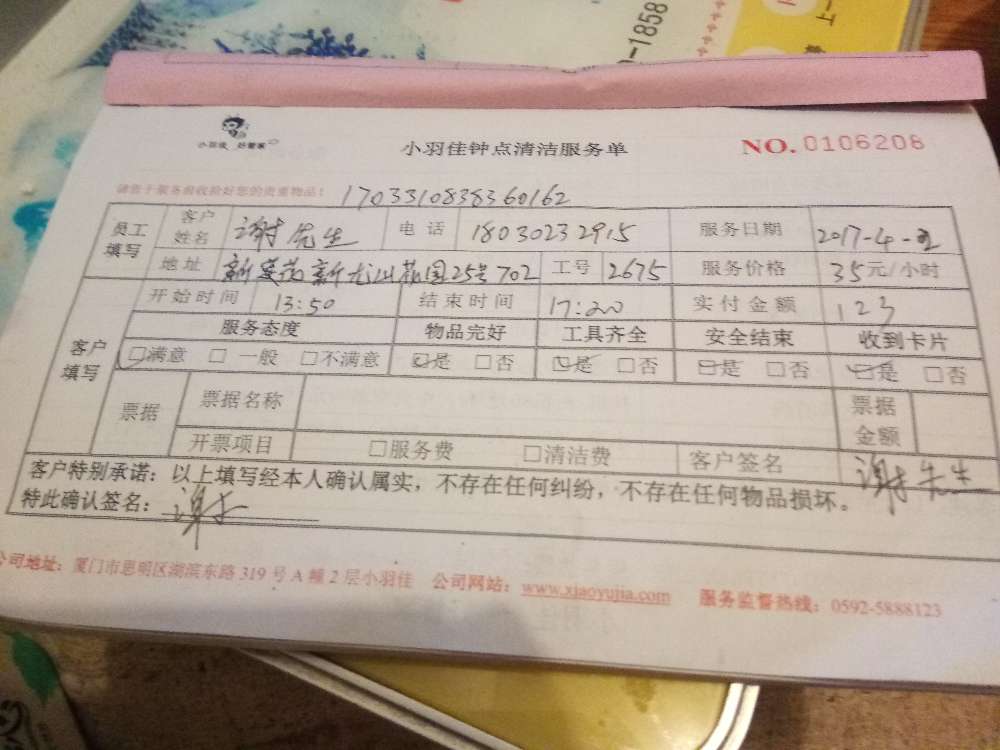 -1858
上一
小羽佳 好管家
小羽佳钟点清洁服务单
NO. 0106208
请您于服务前收拾好您的贵重物品！ 1703310838360162
员工填写 客户姓名 谢先生 电话 18030232915 服务日期 2017-4-2
地址 新景苑新龙山花园25号702 工号 2675 服务价格 35元/小时
开始时间 13:50 结束时间 17:20 实付金额 123
客户填写 服务态度 物品完好 工具齐全 安全结束 收到卡片
满意 □一般 □不满意 是 □否 是 □否 是 □否 是 □否
票据 票据名称 票据金额
开票项目 □服务费 □清洁费 客户签名 谢先生
客户特别承诺：以上填写经本人确认属实，不存在任何纠纷，不存在任何物品损坏。
特此确认签名： 谢
公司地址：厦门市思明区湖滨东路 319 号 A 幢 2 层小羽佳 公司网站：www.xiaoyujia.com 服务监督热线：0592-5888123